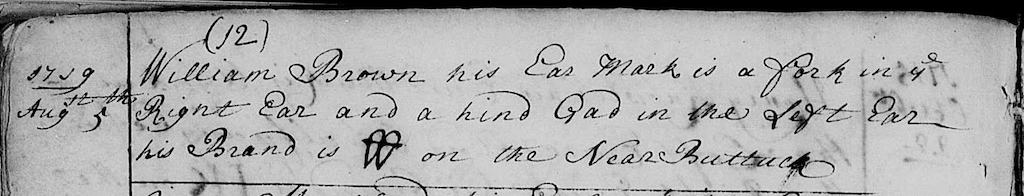 (12)
1719 William Brown his Ear Mark is a fork in yᵉ
Augˢᵗ 5ᵗʰ Right Ear and a hind Gad in the Left Ear
his Brand is W on the Near Buttuck